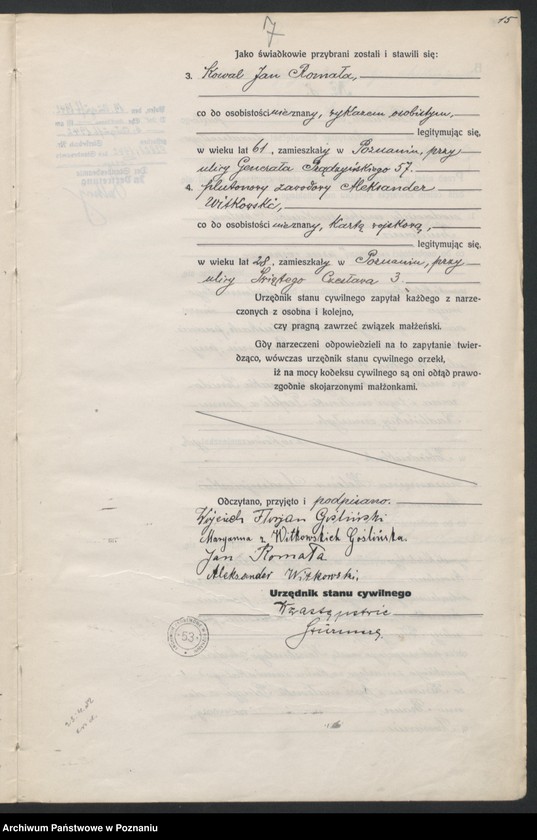 7
15
Jako świadkowie przybrani zostali i stawili się:
3. Kowal Jan Romała,
co do osobistości nieznany, wykazem osobistym,
legitymując się,
w wieku lat 61, zamieszkały w Poznaniu, przy
ulicy Generała Prądzyńskiego 57.
4. plutonowy zawodowy Aleksander
Witkowski,
co do osobistości nieznany, Kartą wojskową,
legitymując się,
w wieku lat 28, zamieszkały w Poznaniu, przy
ulicy Świętego Czesława 3.
Urzędnik stanu cywilnego zapytał każdego z narze-
czonych z osobna i kolejno,
czy pragną zawrzeć związek małżeński.
Gdy narzeczeni odpowiedzieli na to zapytanie twier-
dząco, wówczas urzędnik stanu cywilnego orzekł,
iż na mocy kodeksu cywilnego są oni odtąd prawo-
zgodnie skojarzonymi małżonkami.
Odczytano, przyjęto i podpisano.
Wojciech Florjan Gośliński
Maryanna z Witkowskich Goślińska.
Jan Romała
Aleksander Witkowski,
Urzędnik stanu cywilnego
W zastępstwie
53
Archiwum Państwowe w Poznaniu